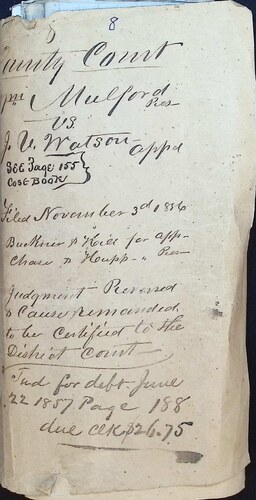 8 8
County Court
Mulford Res
VS.
J. V. Watson appd
SEE Page 155
COST BOOK
Filed November 3d 1856
Buckner & for app
Chase & Hupp " Res
Judgment Reversed
& Cause remanded
to be certified to the
District Court
Jud for debt June
22 1857 Page 188
due Clk $26.75